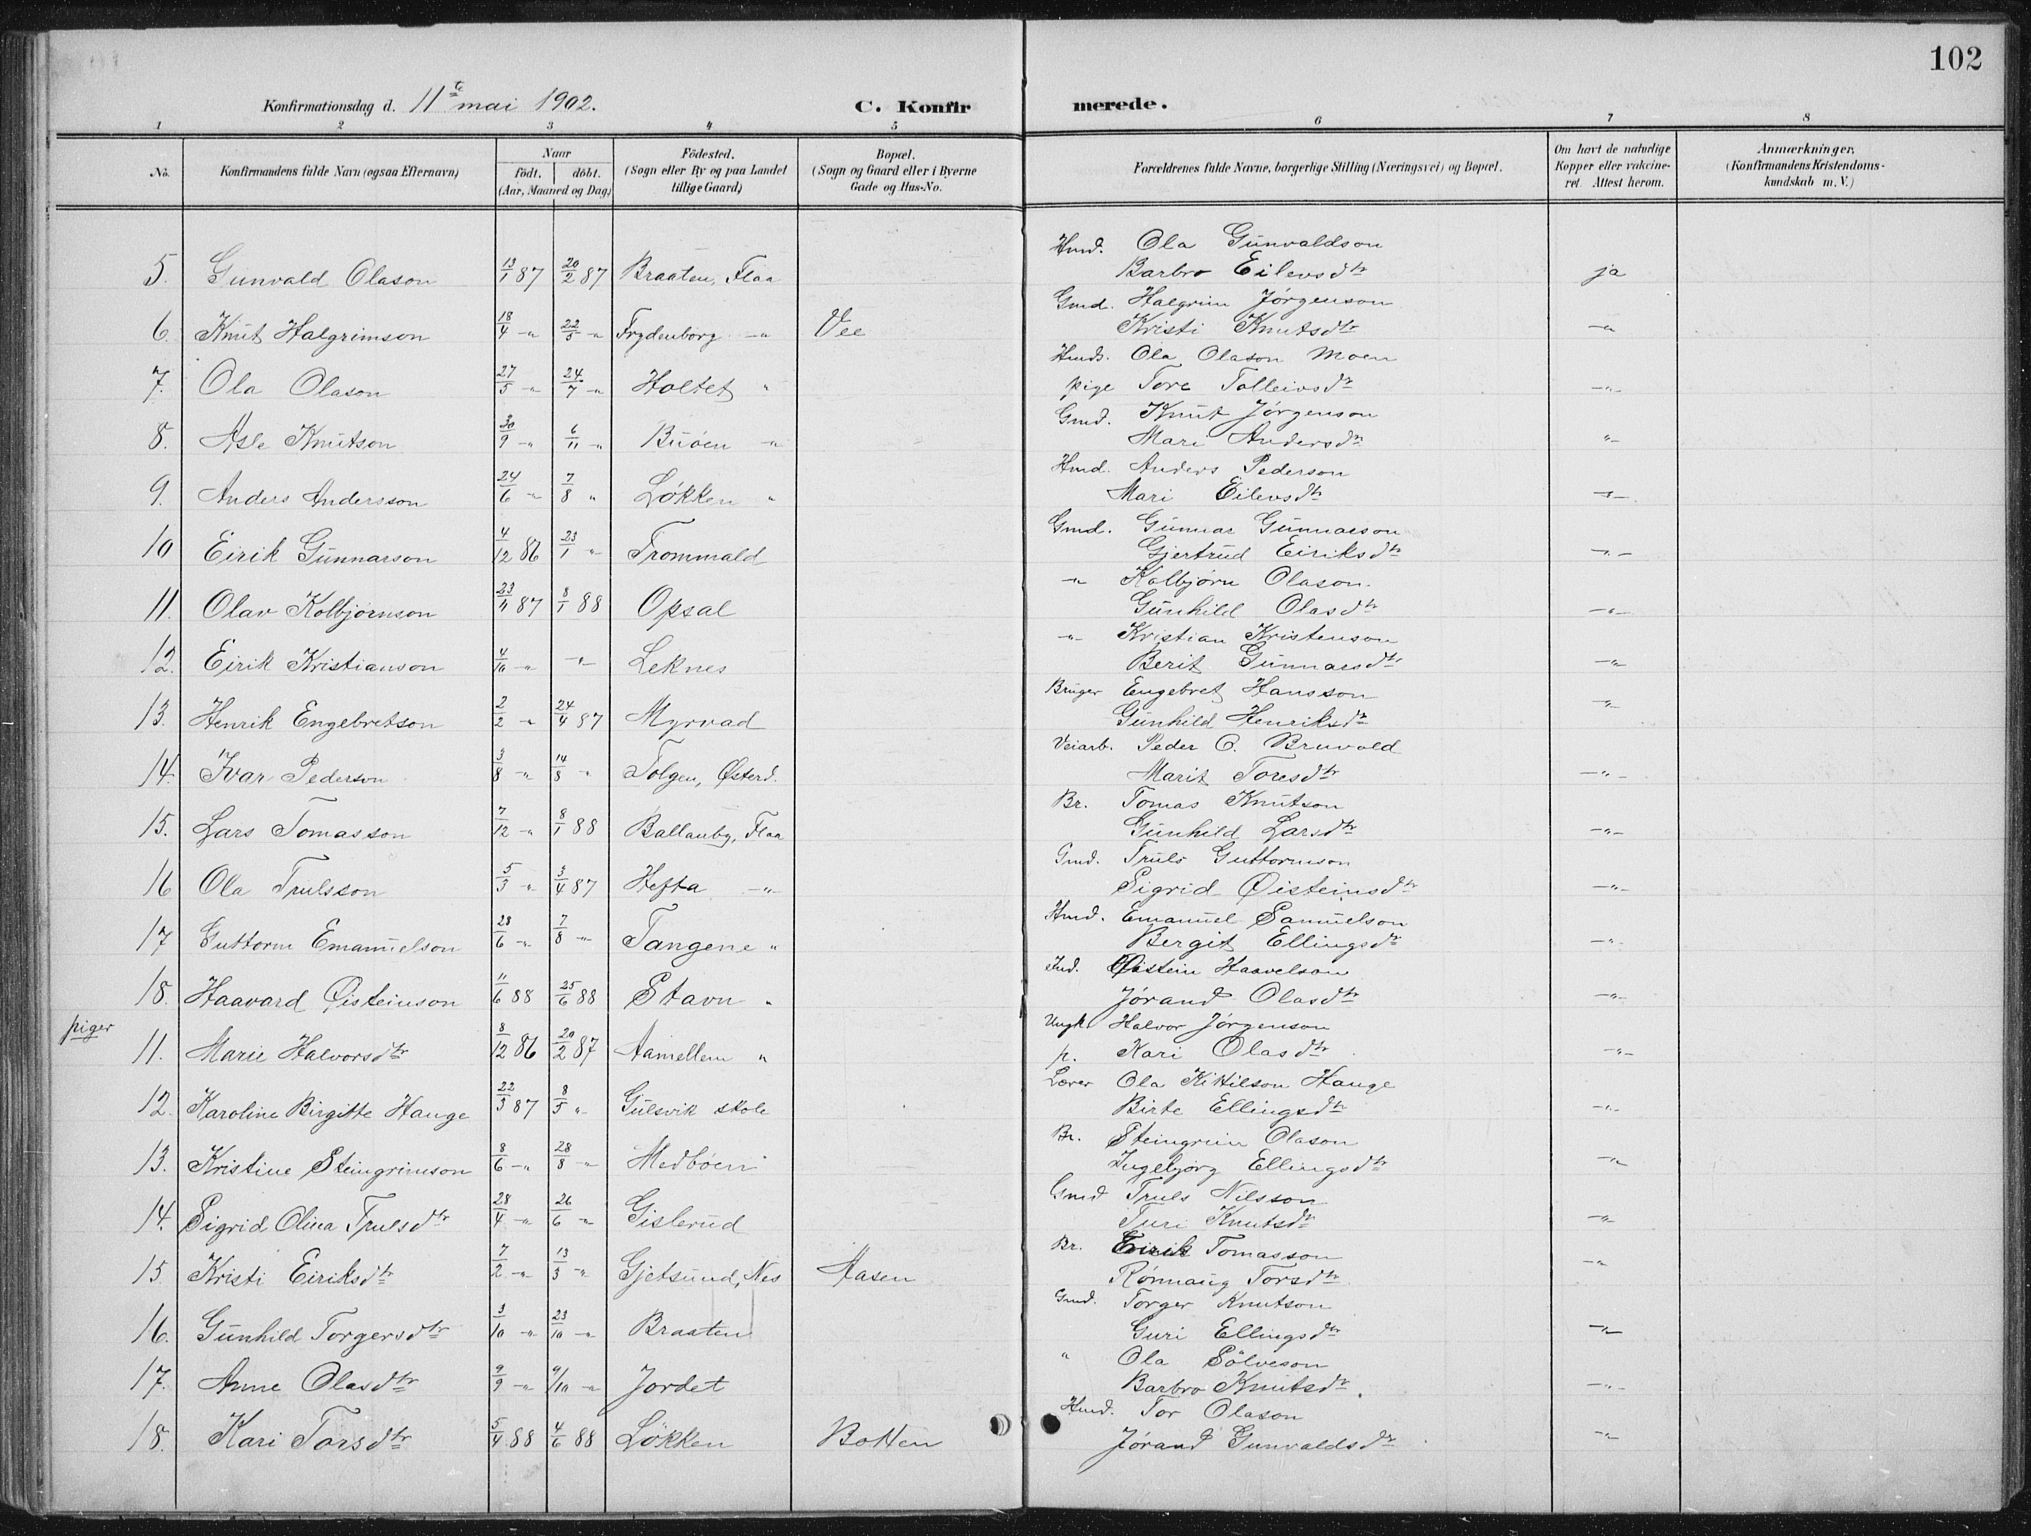 102
Konfirmationsdag d. 11te mai 1902. C. Konfirmerede.
1 2 3 4 5 6 7 8
No. Konfirmandens fulde Navn (ogsaa Efternavn) Naar født. døbt. (Aar, Maaned og Dag) Fødested. (Sogn eller By og paa Landet tillige Gaard) Bopæl. (Sogn og Gaard eller i Byerne Gade og Hus-No. Forældrenes fulde Navne, borgerlige Stilling (Næringsvei) og Bopæl. Om havt de naturlige Kopper eller vakcineret. Attest herom. Anmærkninger. (Konfirmandens Kristendomskundskab m. V.)
Hmd. Ola Gunvaldson
5. Gunvald Olason 13/1 87 20/2 87 Braaten, Flaa Barbro Eilevsdtr ja
Gmd. Halgrim Jørgenson
6. Knut Halgrimson 18/4 -"- 22/5 -"- Frydenborg -"- Vee Kristi Knutsdtr -"-
Hmds. Ola Olason Moen
7. Ola Olason 27/5 -"- 24/7 -"- Holtet " pige Tore Tolleivsdtr -"-
Gmd. Knut Jørgenson
8. Asle Knutson 30/9 -"- 6/11 -"- Buøen -"- Mari Andersdtr -"-
Hmd. Anders Pederson
9. Anders Andersson 24/6 -"- 7/8 " Løkken " Mari Eilevsdtr -"-
Gmd. Gunnar Gunnarson
10 Eirik Gunnarson 4/12 86 23/1 -"- Trommald Gjertrud Eiriksdtr -"-
-"- Kolbjørn Olason.
11. Olav Kolbjørnson 23/11 87 8/1 88 Opsal Gunhild Olasdtr -"-
-"- Kristian Kristenson
12. Eirik Kristianson 4/10 -"- -"- Leknes Berit Gunnarsdtr -"-
Bruger Engebret Hansson
13. Henrik Engebretson 2/2 -"- 24/4 87 Myrvad Gunhild Henriksdtr -"-
Veiarb. Peder O. Bruvold
14. Ivar Pederson 3/8 -"- 14/8 -"- Tolgen, Østerd. Marit Toresdtr -"-
Br. Tomas Knutson
15. Lars Tomasson 7/12 -"- 8/1 88 Ballauby, Flaa Gunhild Larsdtr -"-
Gmd. Truls Guttormson
16 Ola Trulsson 5/3 -"- 3/4 87 Hefta -"- Sigrid Øisteinsdtr -"-
Hmd. Emanuel Samuelson
17 Guttorm Emanuelson 28/6 -"- 7/8 -"- Tangene " Bergit Ellingsdtr -"-
Ind. Øistein Haavelson
18. Haavard Øisteinson 11/6 88 25/6 88 Stavn " Jørand Olasdtr -"-
piger
Ungk. Halvor Jørgenson
11. Marie Halvorsdtr 8/12 86 20/2 87 Aamellem " p. Kari Olasdtr -"-
Lærer Ola Kittilson Hauge
12. Karoline Birgitte Hauge 22/3 87 8/5 " Gulsvik skole Birte Ellingsdtr -"-
Br. Steingrim Olason
13. Kristine Steingrimson 8/6 -"- 28/8 -"- Medbøen Ingebjørg Ellingsdtr -"-
Gmd Truls Nilsson
14. Sigrid Olina Trulsdtr 28/4 -"- 26/6 -"- Gislerud Turi Knutsdtr -"-
Br. Eirik Tomasson
15. Kristi Eiriksdtr 7/2 -"- 13/3 -"- Gjetsund, Nes Aasen Rønnaug Torsdtr -"-
Gmd. Torger Knutson
16. Gunhild Torgersdtr 3/10 -"- 23/10 -"- Braaten Guri Ellingsdtr -"-
" Ola Sølveson
17. Anne Olasdtr 9/9 -"- 9/10 -"- Jordet Barbro Knutsdtr. -"-
Hmd. Tor Olason
18. Kari Torsdtr 5/4 88 4/6 88 Løkken Botten Jørand Gunvaldsdtr -"-